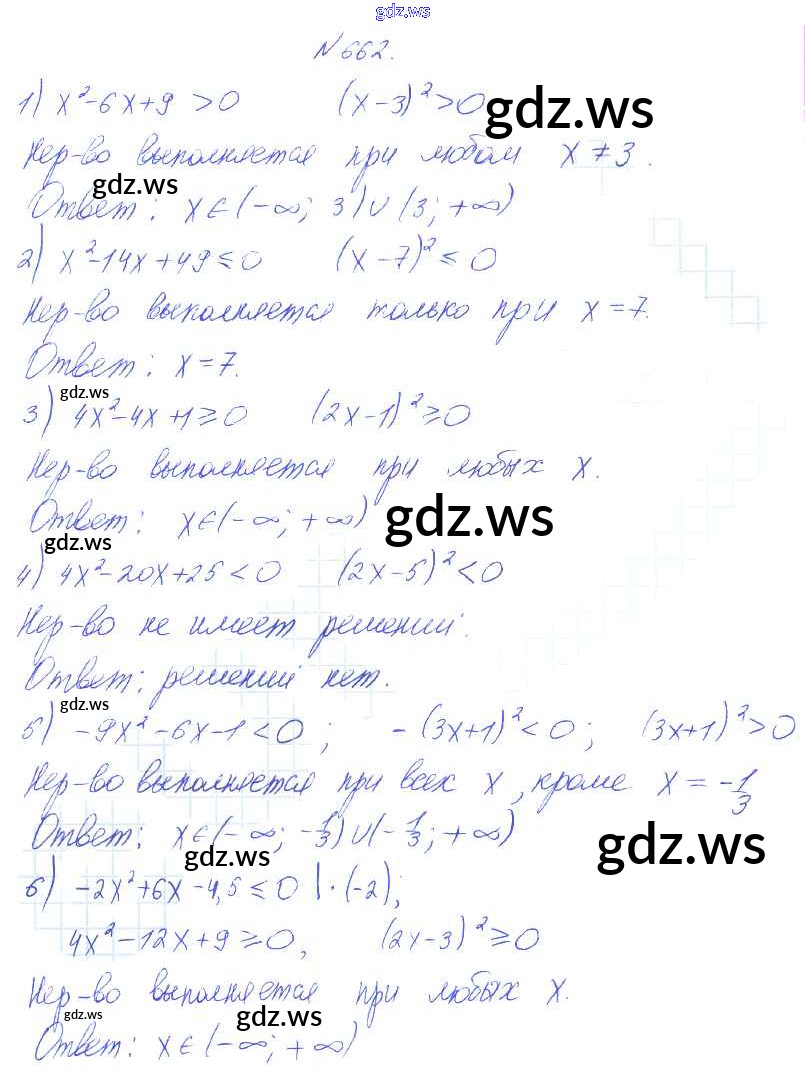 gdz.ws
N 662.
1) x²-6x+9 >0 (x-3)²>0 gdz.ws
Нер-во выполняется при любом x ≠ 3.
gdz.ws
Ответ: x∈(-∞; 3)∪(3; +∞)
2) x²-14x+49≤0 (x-7)²≤0
Нер-во выполняется только при x=7.
Ответ: x=7.
gdz.ws
3) 4x²-4x+1≥0 (2x-1)²≥0
Нер-во выполняется при любых x.
Ответ: x∈(-∞; +∞) gdz.ws
gdz.ws
4) 4x²-20x+25<0 (2x-5)²<0
Нер-во не имеет решений.
Ответ: решений нет.
gdz.ws
5) -9x²-6x-1<0; -(3x+1)²<0; (3x+1)²>0
Нер-во выполняется при всех x, кроме x=-1/3
Ответ: x∈(-∞; -1/3)∪(-1/3; +∞)
gdz.ws gdz.ws
6) -2x²+6x-4,5≤0 |·(-2);
4x²-12x+9≥0, (2x-3)²≥0
Нер-во выполняется при любых x.
gdz.ws gdz.ws
Ответ: x∈(-∞; +∞)